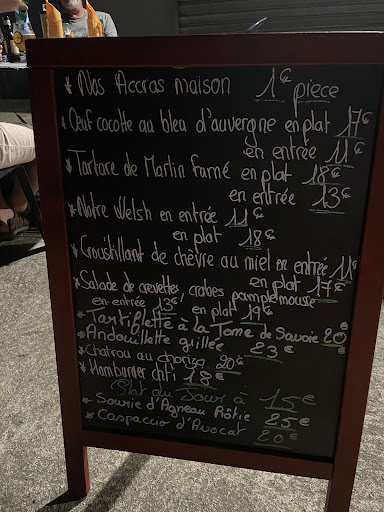 * Nos Accras maison 1€ piece
* Œuf cocotte au bleu d'auvergne en plat 17€
en entrée 11€
* Tartare de Martin fumé en plat 18€
en entrée 13€
* Notre Welsh en entrée 11€
en plat 18€
* Croustillant de chèvre au miel en entrée 11€
en plat 17€
* Salade de crevettes, crabes, pamplemousse
en entrée 13€ en plat 19€
* Tartiflette à la Tome de Savoie 20€
* Andouillette grillée 23€
* Chatrou au chorizo 20€
* Hamburger chti 18€
Plat du Jour à 15€
* Sourie d'Agneau Rôtie 25€
* Caspaccio d'Avocat 20€